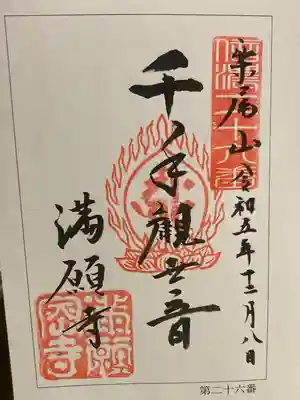 栗尾山
令和五年十二月八日
信濃二十六番
千手観世音
満願寺
満願寺
第二十六番